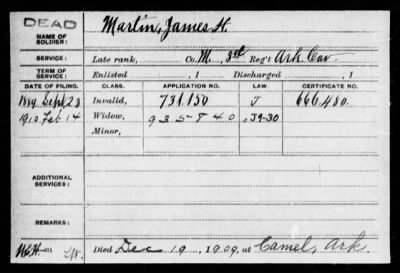 DEAD
NAME OF SOLDIER: Marlin, James H.
SERVICE: Late rank, Co. M, 3rd Reg't Ark. Cav.
TERM OF SERVICE: Enlisted , 1 Discharged , 1
DATE OF FILING. CLASS. APPLICATION NO. LAW. CERTIFICATE NO.
1889 Sept 23 Invalid, 731.150 J 666.480.
1910 Feb 14 Widow, 935840 a J9-30
Minor,
ADDITIONAL SERVICES:
REMARKS:
Died Dec 19, 1909, at Camel, Ark.